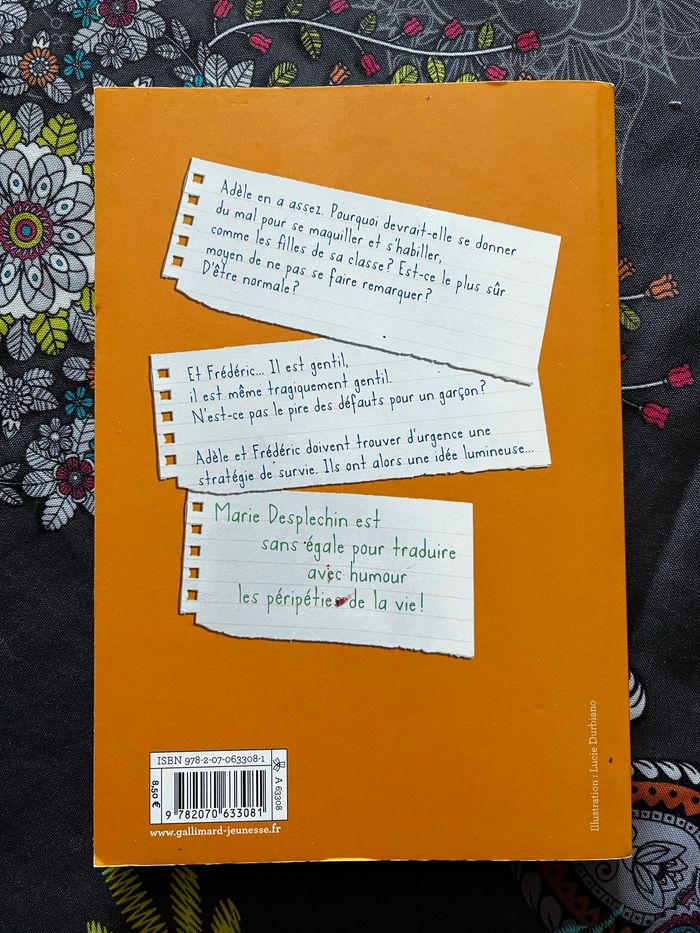 Adèle en a assez. Pourquoi devrait-elle se donner
du mal pour se maquiller et s'habiller,
comme les filles de sa classe? Est-ce le plus sûr
moyen de ne pas se faire remarquer?
D'être normale?
Et Frédéric... Il est gentil,
il est même tragiquement gentil.
N'est-ce pas le pire des défauts pour un garçon?
Adèle et Frédéric doivent trouver d'urgence une
stratégie de survie. Ils ont alors une idée lumineuse...
Marie Desplechin est
sans égale pour traduire
avec humour
les péripéties de la vie!
Illustration : Lucie Durbiano
ISBN 978-2-07-063308-1
A 63308
8,50 €
9 782070 633081
www.gallimard-jeunesse.fr